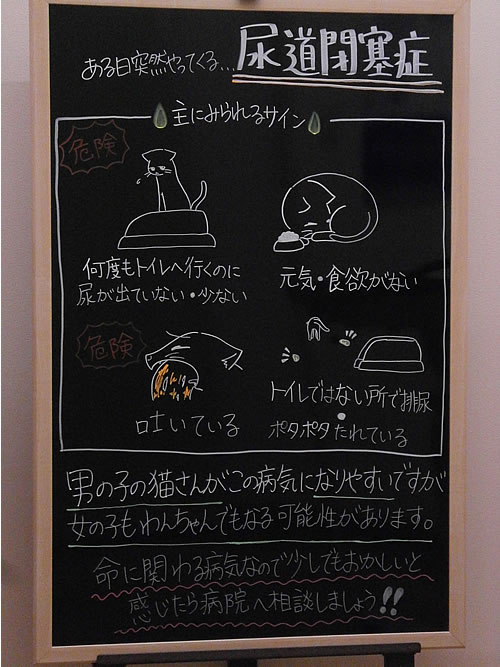 ある日突然やってくる...尿道閉塞症
主にみられるサイン
危険
何度もトイレへ行くのに
尿が出ていない・少ない
元気・食欲がない
危険
吐いている
トイレではない所で排尿
ポタポタたれている
男の子の猫さんがこの病気になりやすいですが
女の子もわんちゃんでもなる可能性があります。
命に関わる病気なので少しでもおかしいと
感じたら病院へ相談しましょう!!